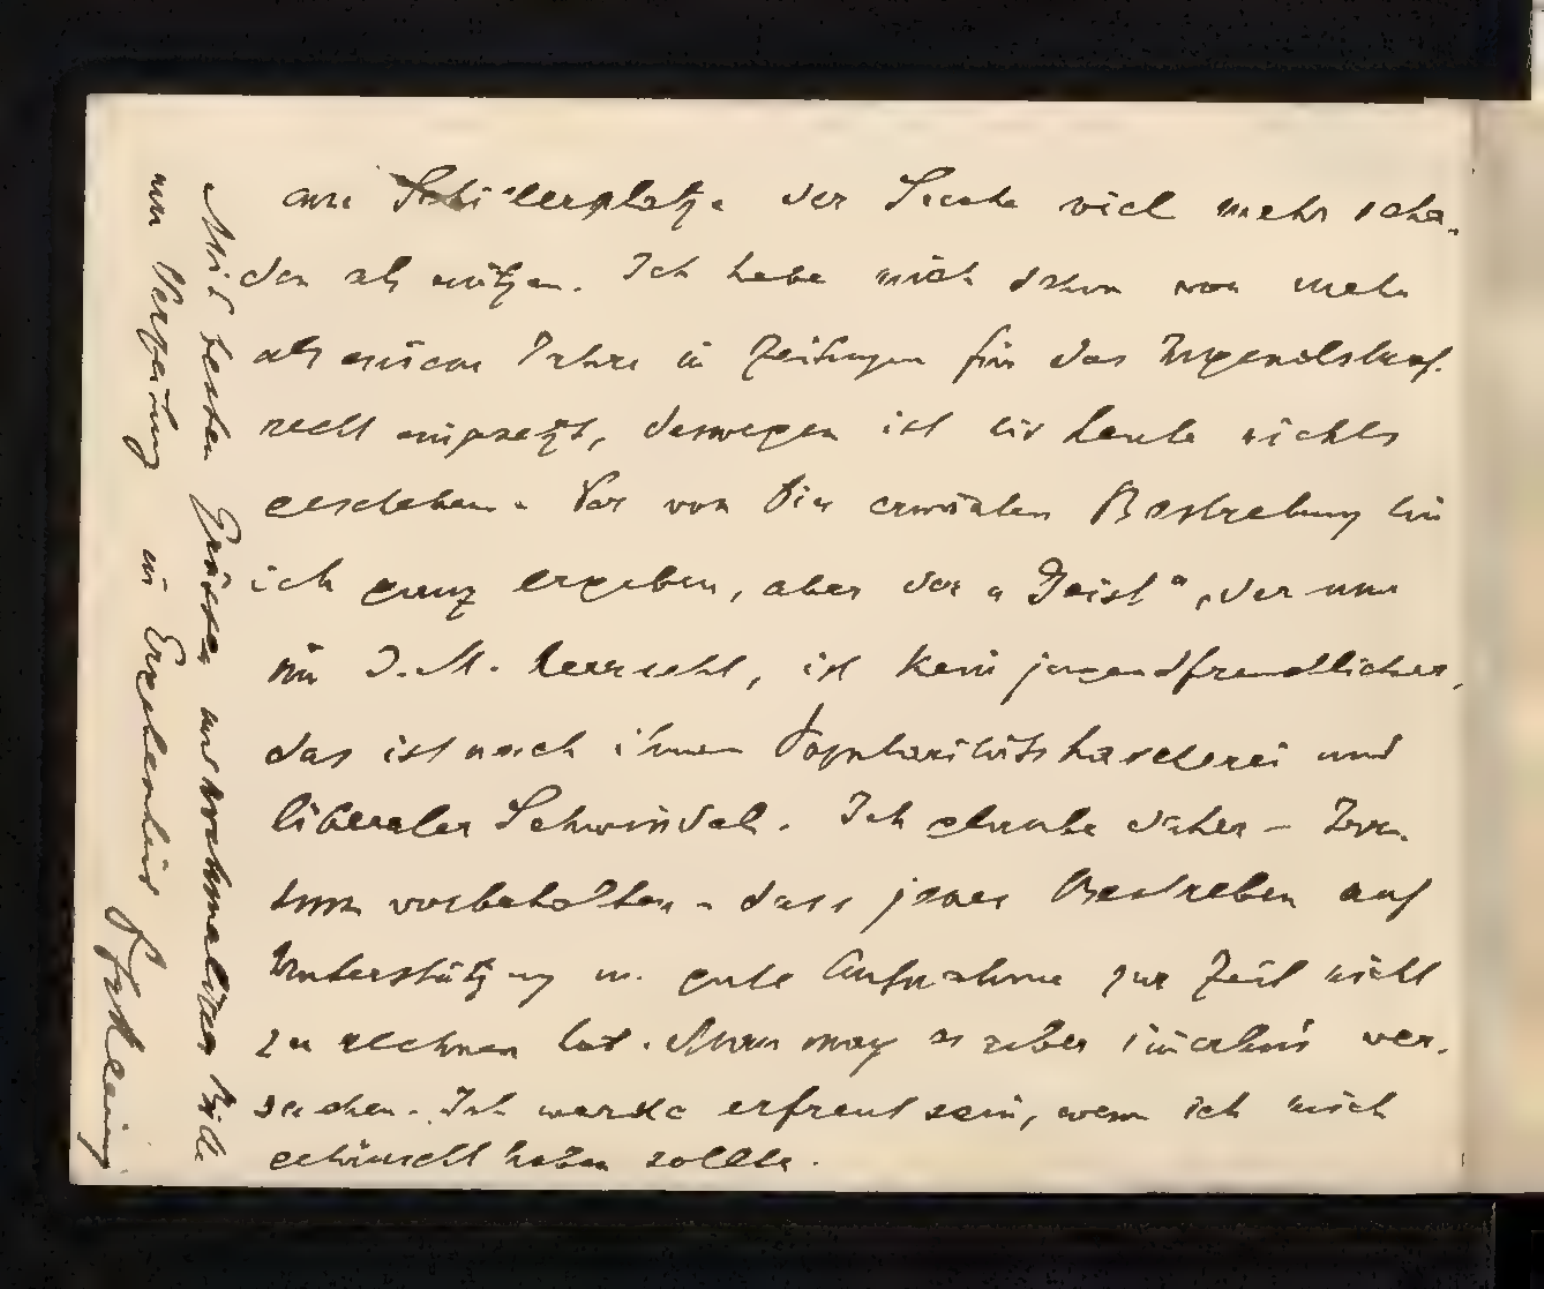 am Schillerplatze der Sache viel mehr scha-
den als nützen. Ich habe mich schon vor mehr
als einem Jahre in Zeitungen für das Jugendstraf-
recht eingesetzt, deswegen ist bis heute nichts
geschehen. Der von Dir erwähnten Bestrebung bin
ich ganz ergeben, aber der „Geist“, der nun
im J.M. herrscht, ist kein jugendfreundlicher,
das ist nach ihnen Popularitätshascherei und
liberaler Schwindel. Ich glaube daher – Irr-
tum vorbehalten – dass jenes Bestreben auf
Unterstützung u. gute Aufnahme zur Zeit nicht
zu rechnen hat. Man mag es aber immerhin ver-
suchen. Ich werde erfreut sein, wenn ich mich
getäuscht haben sollte.
Mit besten Grüssen und nochmaliger Bitte
um Verzeihung in Ergebenheit